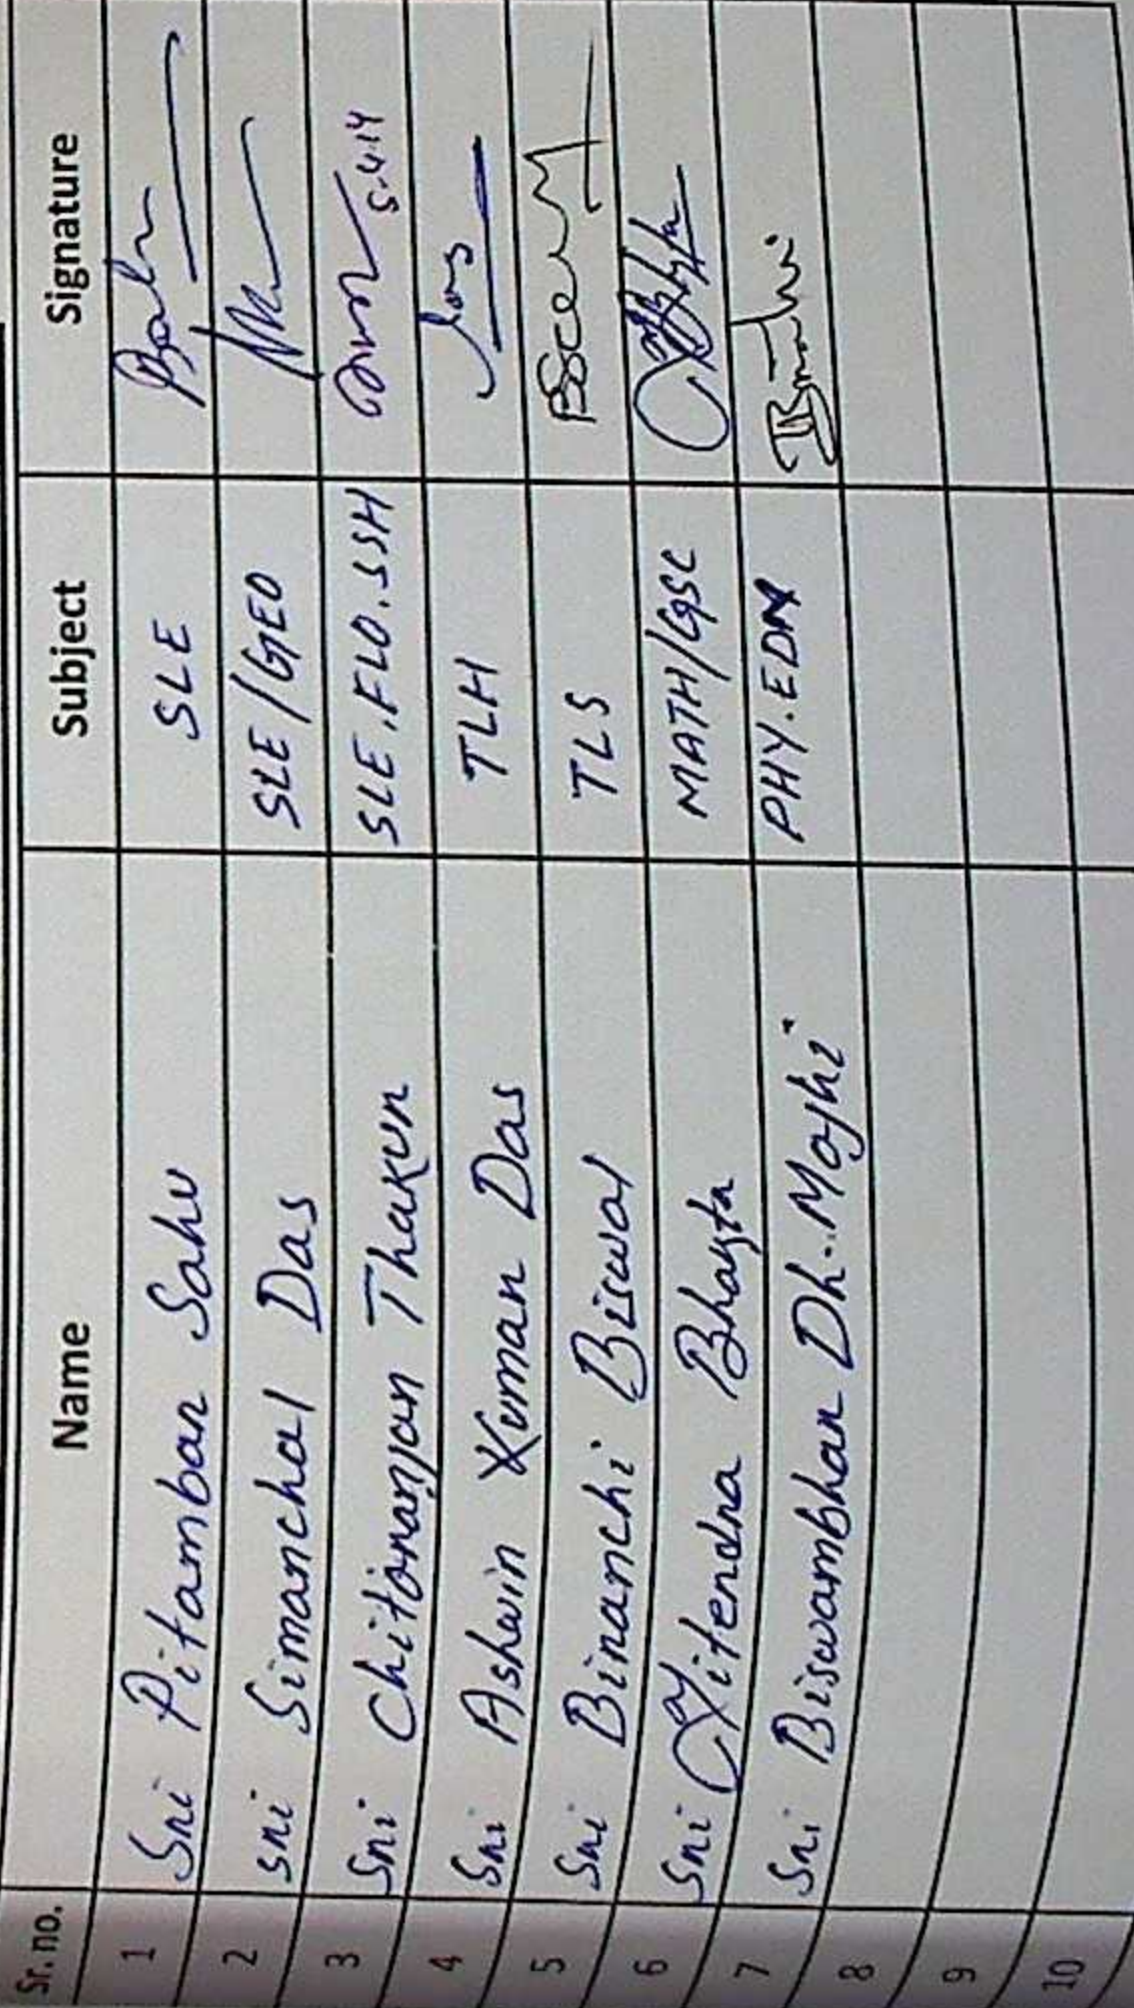 Sr. no. Name Subject Signature
1 Sri Pitambar Sahu SLE
2 Sri Simanchal Das SLE/GEO
3 Sri Chitaranjan Thakur SLE.FLO.SSH 5-4-14
4 Sri Ashwin Kumar Das TLH
5 Sri Biranchi Biswal TLS
6 Sri Jitendra Bhayta MATH/GSC
7 Sri Biswambhar Dh. Majhi PHY.EDN
8
9
10